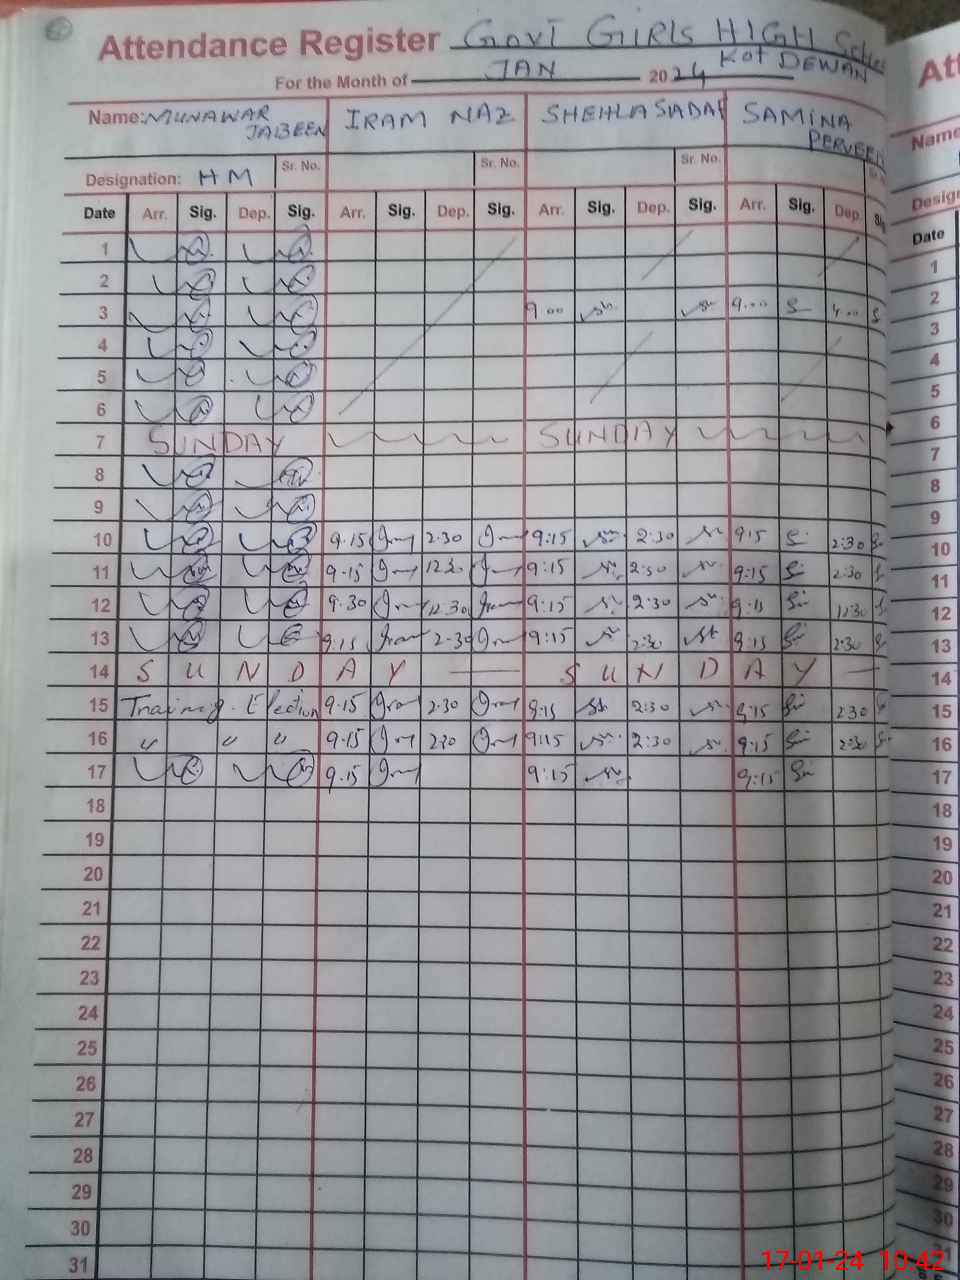 Attendance Register Govt GIRLS HIGH
Kot DEWAN
For the Month of JAN 2024
Name: MUNAWAR JABEEN IRAM NAZ SHEHLA SADAF SAMINA PERVEEN
Designation: HM Sr. No. Sr. No. Sr. No.
Date Arr. Sig. Dep. Sig. Arr. Sig. Dep. Sig. Arr. Sig. Dep. Sig. Arr. Sig. Dep. Sig
1
2
3 9.00 9.00 4.00
4
5
6
7 SUNDAY SUNDAY
8
9
10 9.15 2.30 9:15 2:30 9.15 2:30
11 9.15 9:15 2:30 9:15 2:30
12 9.30 12.30 9:15 2:30 9:15 12:30
13 9.15 2.30 9:15 2:30 9:15 2:30
14 SUNDAY SUNDAY
15 Training Election 9.15 2.30 9:15 2:30 9:15 2:30
16 " " " 9.15 2.30 9:15 2:30 9:15 2:30
17 9.15 9:15 9:15
18
19
20
21
22
23
24
25
26
27
28
29
30
31
Att
Name
Desig
Date
1
2
3
4
5
6
7
8
9
10
11
12
13
14
15
16
17
18
19
20
21
22
23
24
25
26
27
28
29
30
31
17-01-24 10:42